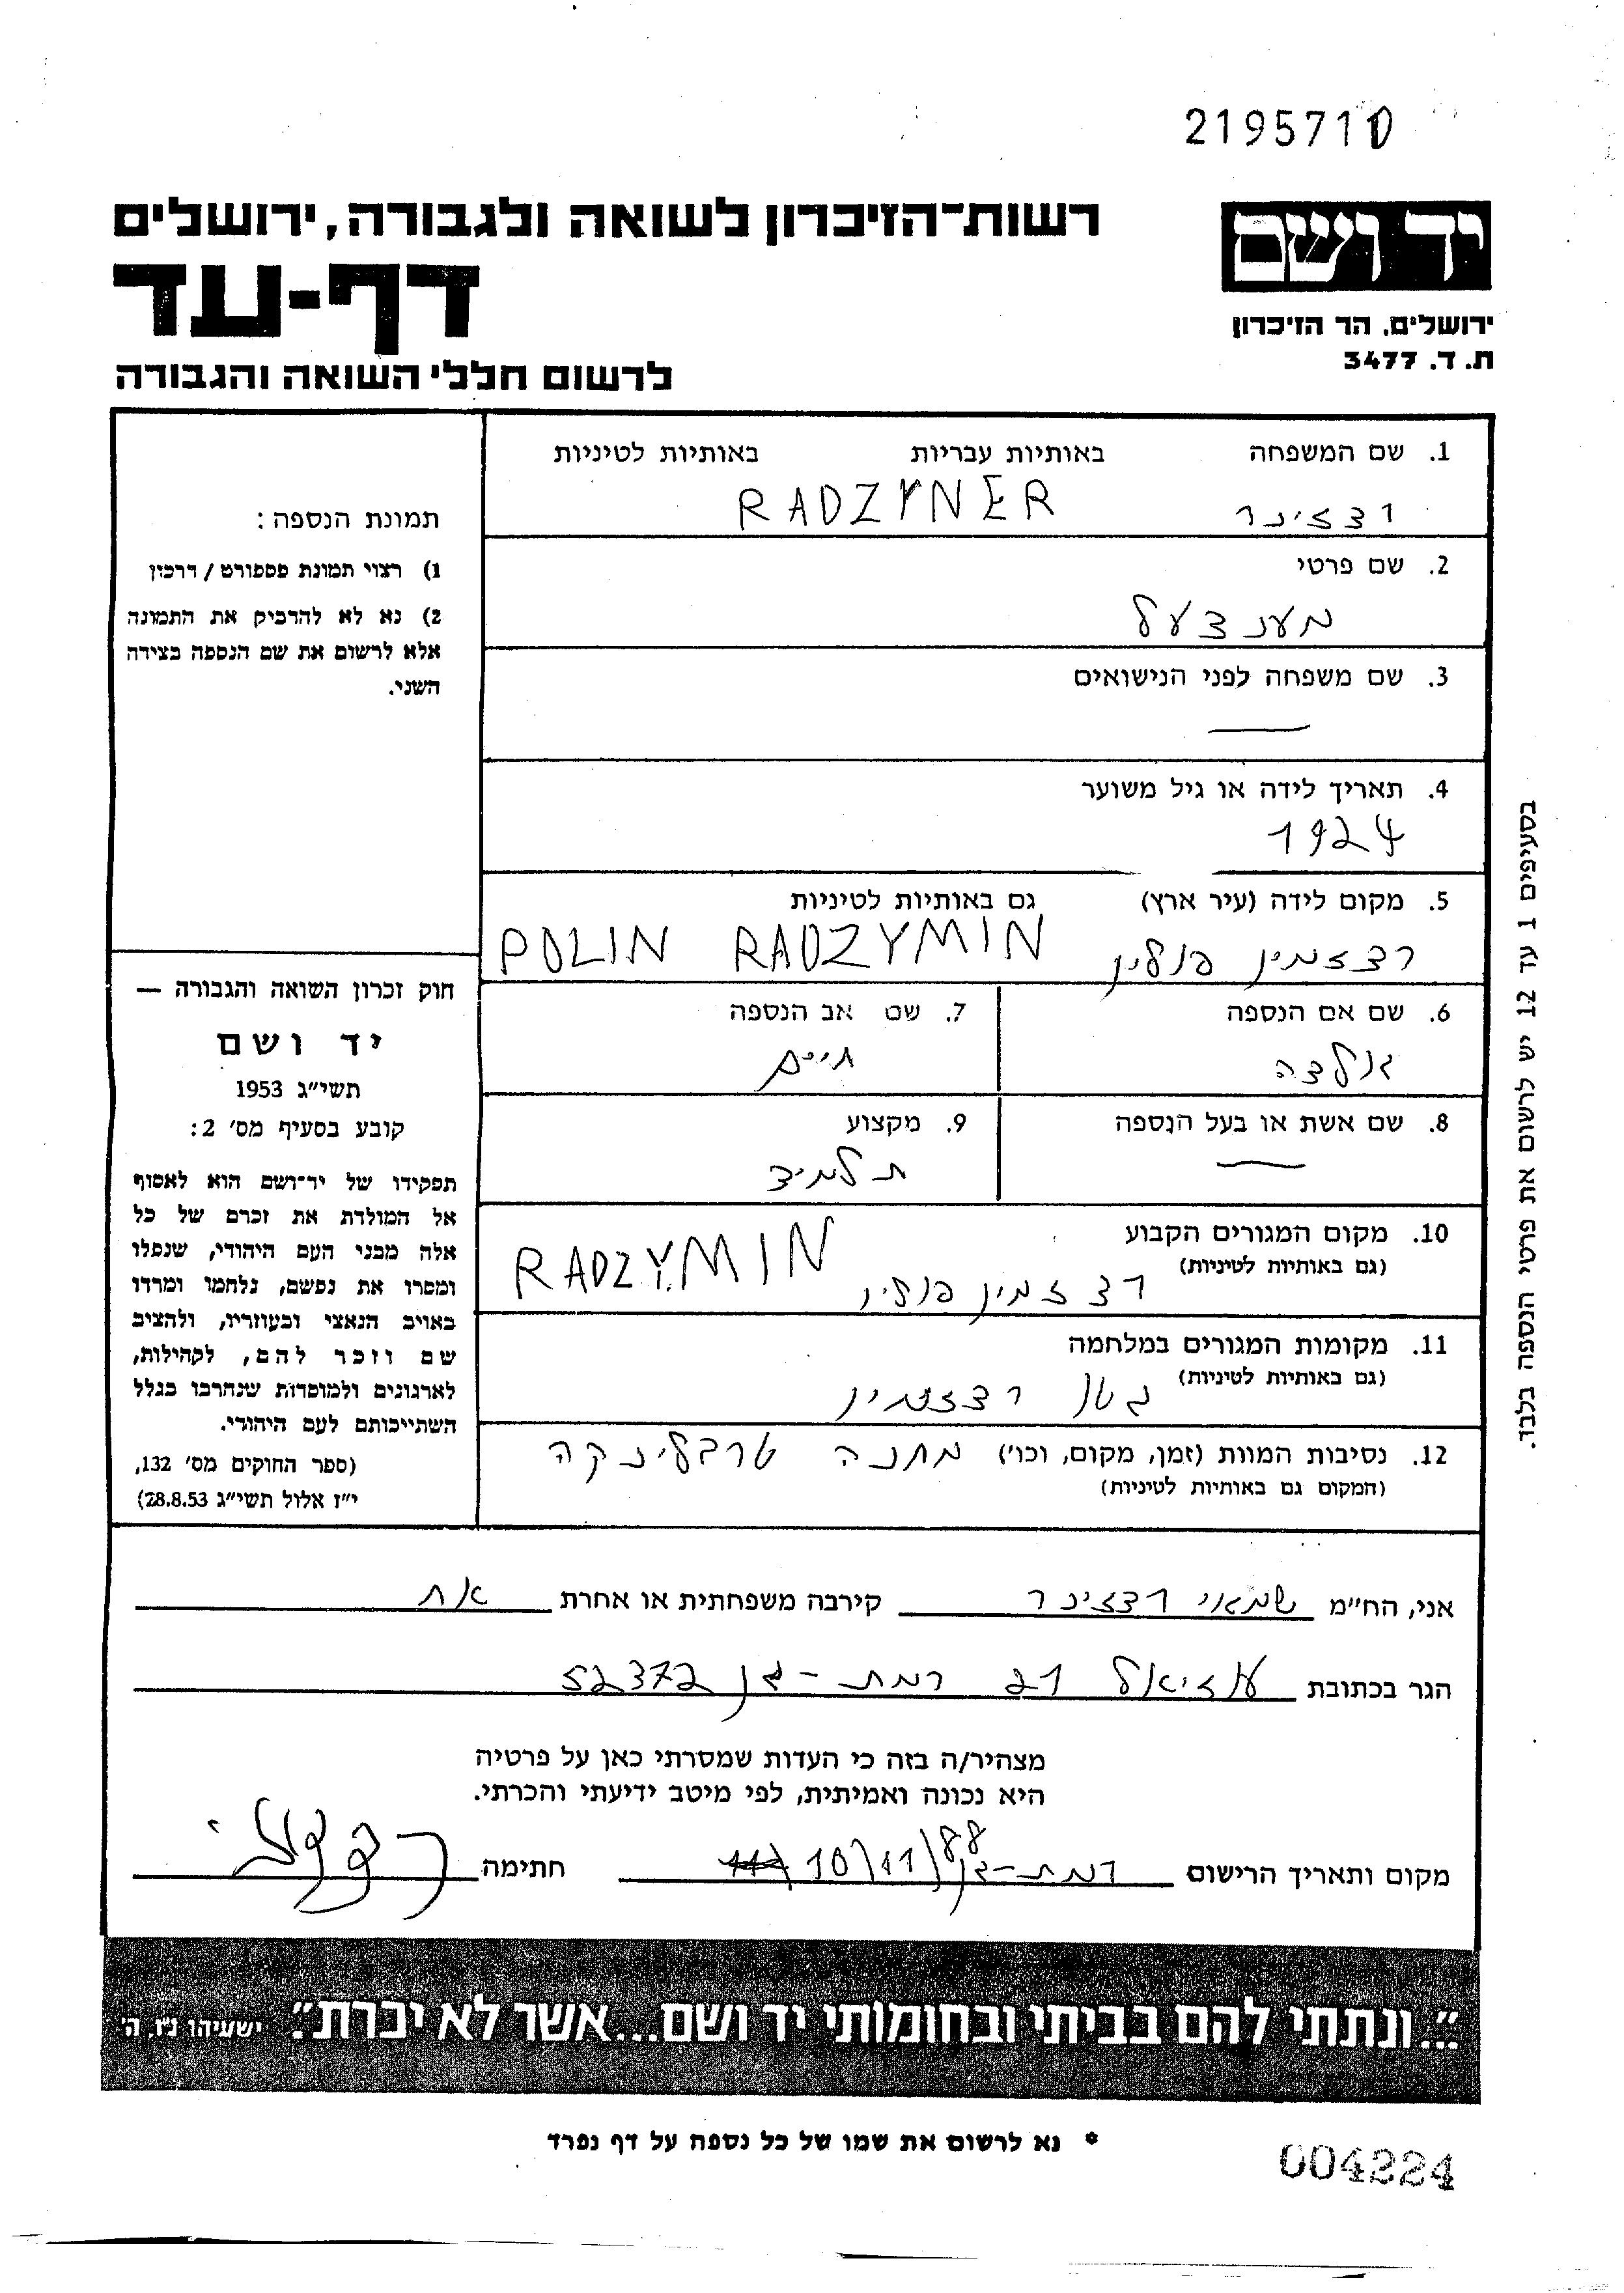 2195711
רשות־הזיכרון לשואה ולגבורה, ירושלים
דף-עד
לרשום חללי השואה והגבורה
יד ושם
ירושלים, הר הזיכרון
ת. ד. 3477
1. שם המשפחה באותיות עבריות באותיות לטיניות
רדזינר RADZYNER
2. שם פרטי
מענדעל
3. שם משפחה לפני הנישואים
—
4. תאריך לידה או גיל משוער
1924
5. מקום לידה (עיר ארץ) גם באותיות לטיניות
רדזמין פולין POLIN RADZYMIN
6. שם אם הנספה
גולדה
7. שם אב הנספה
חיים
8. שם אשת או בעל הנספה
—
9. מקצוע
תלמיד
10. מקום המגורים הקבוע
(גם באותיות לטיניות)
רדזמין פולין RADZYMIN
11. מקומות המגורים במלחמה
(גם באותיות לטיניות)
גטו רדזמין
12. נסיבות המוות (זמן, מקום, וכו׳) מחנה טרבלינקה
(המקום גם באותיות לטיניות)
תמונת הנספה:
1) רצוי תמונת פספורט / דרכון
2) נא לא להדביק את התמונה
אלא לרשום את שם הנספה בצידה
השני.
חוק זכרון השואה והגבורה —
יד ושם
תשי״ג 1953
קובע בסעיף מס׳ 2:
תפקידו של יד־ושם הוא לאסוף
אל המולדת את זכרם של כל
אלה מבני העם היהודי, שנפלו
ומסרו את נפשם, נלחמו ומרדו
באויב הנאצי ובעוזריו, ולהציב
שם וזכר להם, לקהילות,
לארגונים ולמוסדות שנחרבו בגלל
השתייכותם לעם היהודי.
(ספר החוקים מס׳ 132,
י״ז אלול תשי״ג 28.8.53)
בסעיפים 1 עד 12 יש לרשום את פרטי הנספה בלבד.
אני, הח״מ שמאי רדזינר קירבה משפחתית או אחרת אח
הגר בכתובת עוזיאל 21 רמת-גן 52372
מצהיר/ה בזה כי העדות שמסרתי כאן על פרטיה
היא נכונה ואמיתית, לפי מיטב ידיעתי והכרתי.
מקום ותאריך הרישום רמת-גן 10/11/88 חתימה
״...ונתתי להם בביתי ובחומותי יד ושם...אשר לא יכרת״. ישעיהו נו, ה׳
* נא לרשום את שמו של כל נספה על דף נפרד
004224